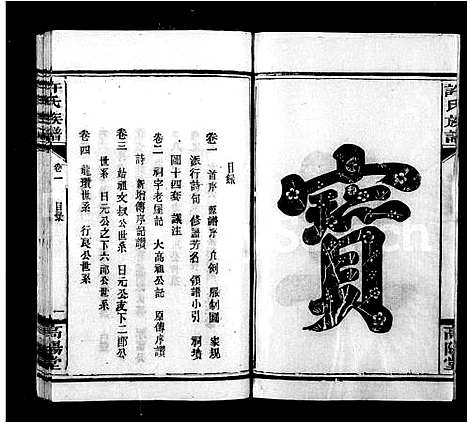 許氏族譜
寶
高陽堂
目錄
卷一 首序 舊譜序 凡例 服制圖 家規
派行詩句 修譜芳名 領譜小引 祠墳
圖十四套 議注
卷二 祠宇老屋記 大高祖公誌 原傳序讚
詩 新增傳序記讚
卷三 始祖文叔公世系 日元公改下二郎公
世系
卷四 龍瓚世系 日元公之下六郎公世系 行良公世系
許氏族譜
卷一
目錄
一
高陽堂